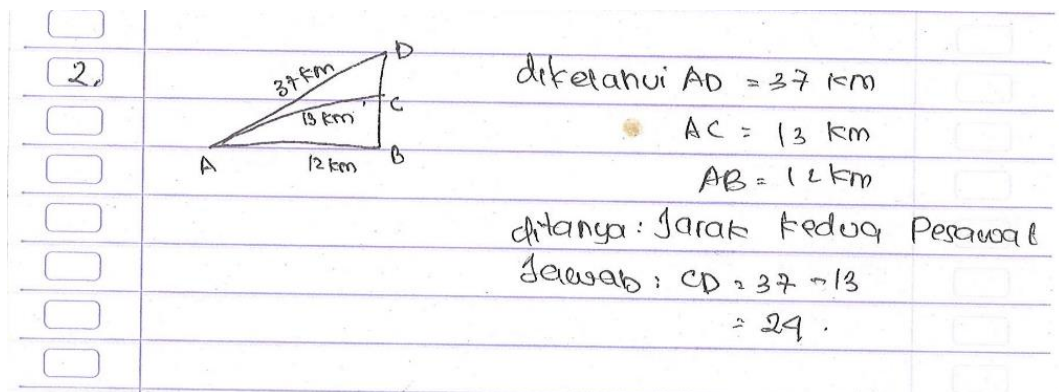 2.
37 km
D
13 km
C
A
12 km
B
diketahui AD = 37 km
AC = 13 km
AB = 12 km
ditanya: Jarak kedua Pesawat
Jawab: CD = 37 - 13
= 24.